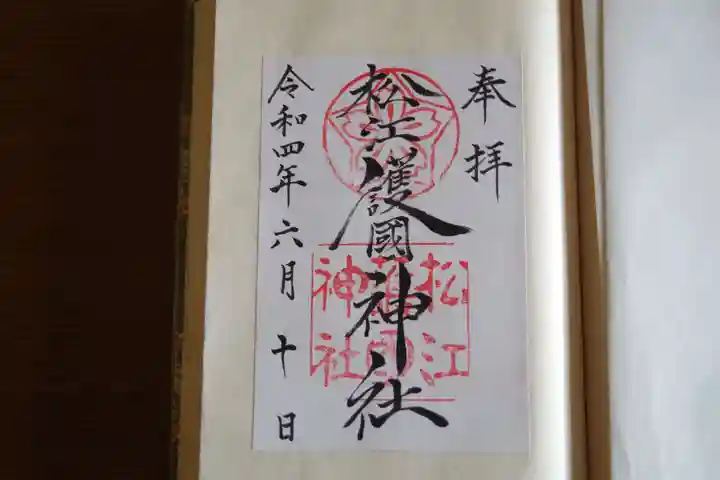 奉拝
松江護國神社
松江
護国
神社
令和四年六月十日